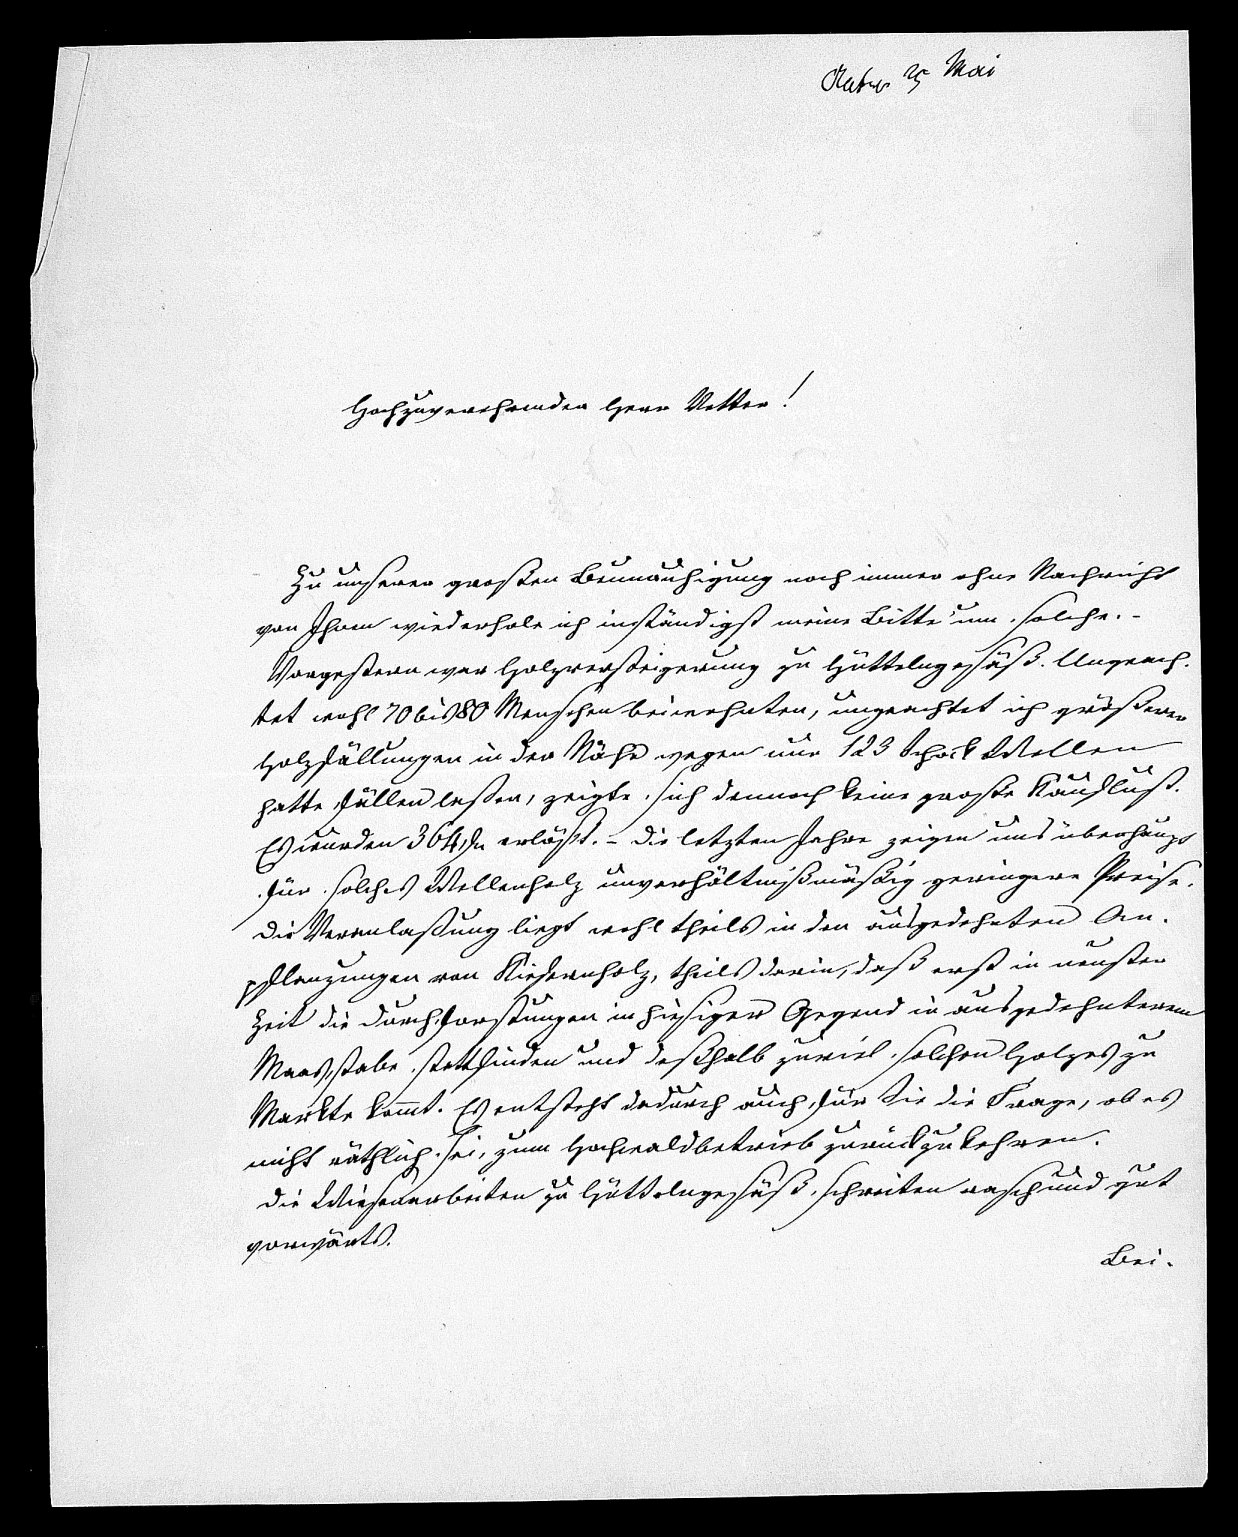 25 Mai
Hochzuverehrender Herr Vetter!
Zu unserer großen Beunruhigung noch immer ohne Nachricht
von Ihnen wiederhole ich inständigst meine Bitte um solche. -
Vorgestern war Holzversteigerung zu Hüttelngesäß. Ungeach-
tet wohl 70 bis 80 Menschen beiwohnten, ungeachtet ich größerer
Holzfällungen in der Nähe wegen nur 123 Schock Wellen
hatte fällen laßen, zeigte sich dennoch keine große Kauflust.
Es wurden 364 fl erlößt. - Die letzten Jahre zeigen uns überhaupt
für solches Wellenholz unverhältnißmäßig geringere Preise.
Die Veranlaßung liegt wohl theils in den ausgedehnten An-
pflanzungen von Kiefernholz, theils darin, daß erst in neuster
Zeit die Durchforstungen in hiesiger Gegend in ausgedehnterem
Maasstabe stattfinden und deßhalb zuviel solchen Holzes zu
Markte kommt. Es entsteht dadurch auch für Sie die Frage, ob es
nicht räthlich sei, zum Hochwaldbetrieb zurückzukehren.
Die Wiesenarbeiten zu Hüttelngesäß schreiten rasch und gut
vorwärts.
Bei-